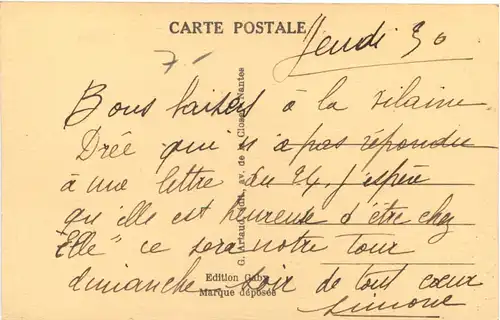 CARTE POSTALE
Jeudi 30
7-
Bons baisers à la vilaine
Drée qui n'a pas répondu
à ma lettre du 24. J'espère
qu'elle est heureuse d'être chez
"Elle" ce sera notre tour
dimanche soir de tout cœur
Simone
G. Artaud, édit., av. de la Close, Nantes
Edition Gaby
Marque déposée